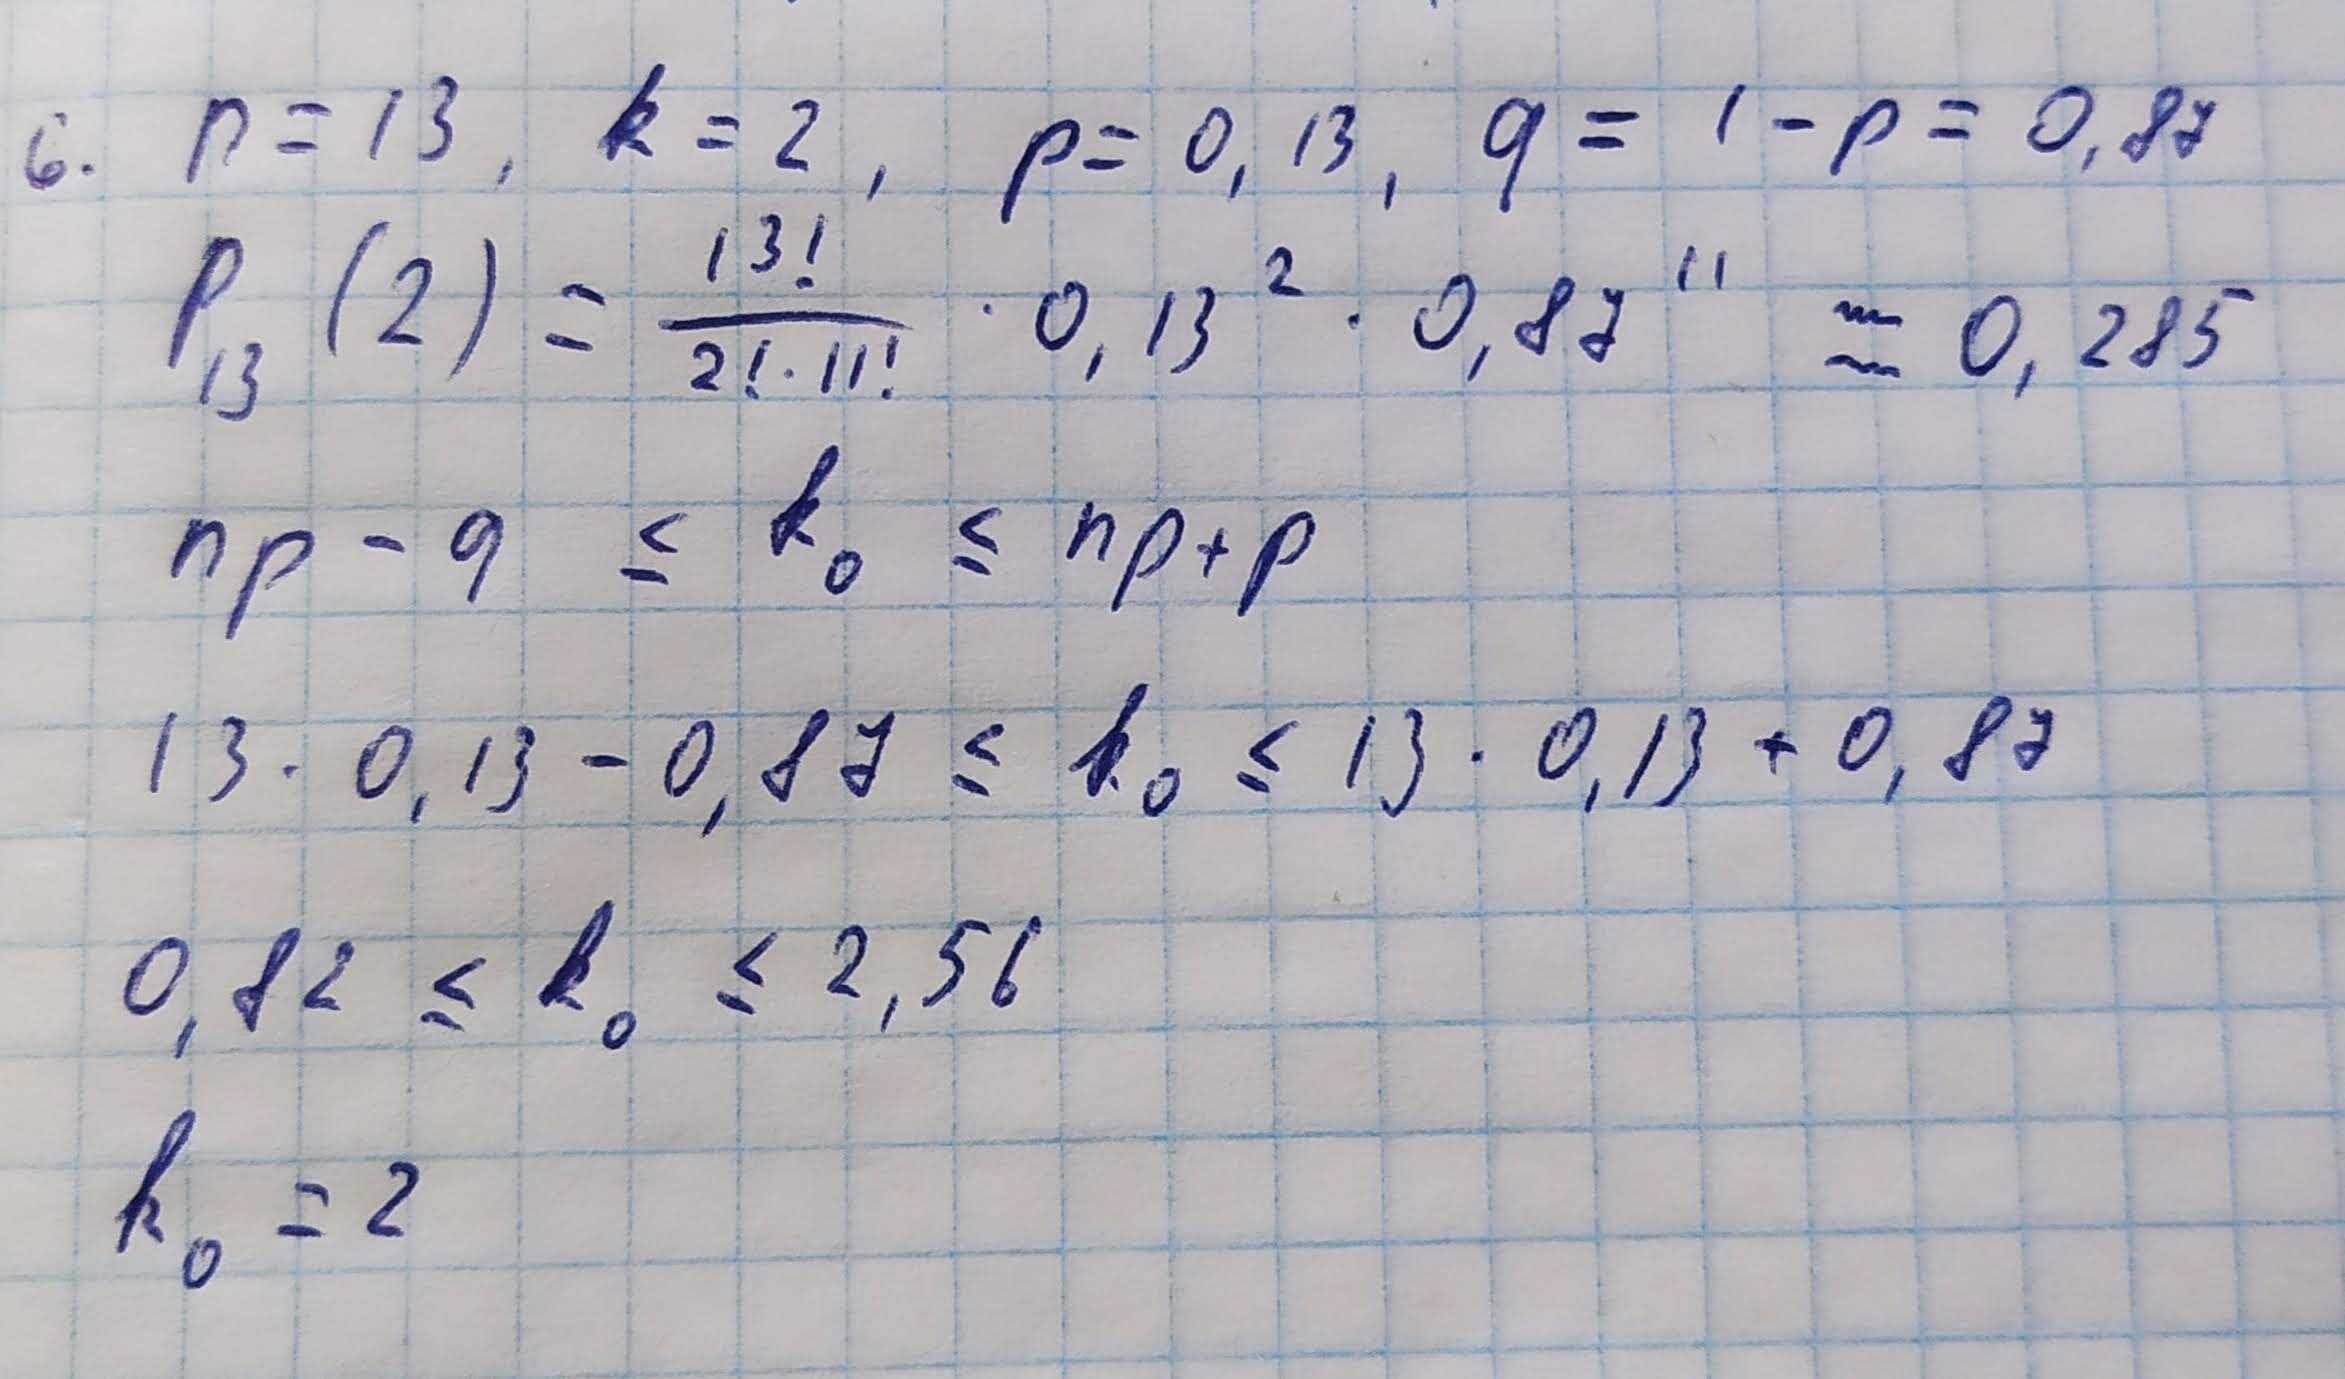 6. n = 13, k = 2, p = 0,13, q = 1 - p = 0,87
P₁₃(2) = 13!/(2!·11!) · 0,13² · 0,87¹¹ ≈ 0,285
np - q ≤ k₀ ≤ np + p
13 · 0,13 - 0,87 ≤ k₀ ≤ 13 · 0,13 + 0,87
0,82 ≤ k₀ ≤ 2,56
k₀ = 2